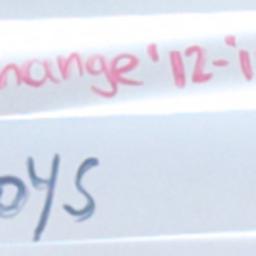 hange '12-'1
oys